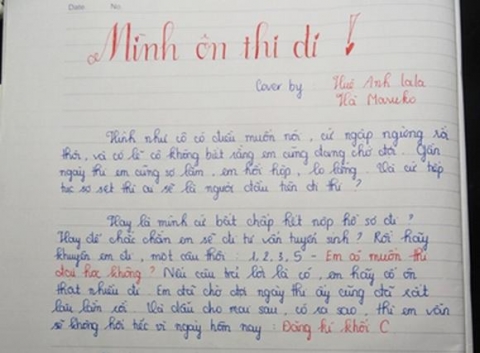 Date No.
Mình ôn thi đi
Cover by : Huê Anh lala
Hà Maruko
Hình như cô có điều muốn nói, cứ ngập ngừng rồi
thôi, và có lẽ cô không biết rằng em cũng đang chờ đợi. Gần
ngày thi em cũng sợ lắm, em hồi hộp, lo lắng. Và cứ tiếp
tục sợ sệt thì ai sẽ là người đầu tiên đi thi ?
Hay là mình cứ bất chấp hết nộp hồ sơ đi ?
Hay để chắc chắn em sẽ đi tư vấn tuyển sinh ? Rồi hãy
khuyên em đi, một câu thôi : 1, 2, 3, 5 - Em có muốn thi
đại học không ? Nếu câu trả lời là có, em hãy cố ôn
thật nhiều đi. Em đã chờ đợi ngày thi ấy cũng đã rất
lâu lắm rồi. Và dẫu cho mai sau, có ra sao, thì em vẫn
sẽ không hối tiếc vì ngày hôm nay : Đăng kí khối C